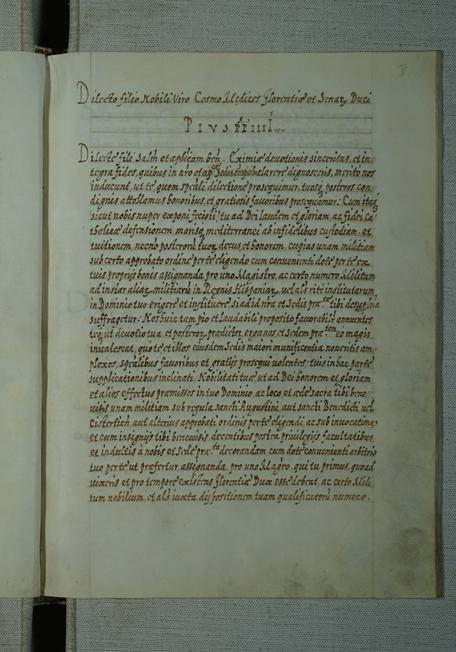 Dilecto filio Nobili Viro Cosmo Medices florentiæ et Senar. Duci
PIVS. PP. IIII.
Dilecte fili Salm et aplicam ben. Eximiæ devotionis sinceritas, et in
tegra fides, quibus in nro et aplicæ Sedis conspectu clarere dignosceris, merito nos
inducunt, ut te, quem spetiali dilectione prosequimur, tuosq posteros con
dignis attollamus honoribus, et gratiosis favoribus prosequamur. Cum itaq
sicut nobis nuper exponi fecisti, tu ad Dei laudem et gloriam, ac fidei Ca
tholicæ defensionem, marisq mediterranei ab infidelibus custodiam, et
tuitionem, necnō posterorū tuor decus, et honorem, cupias unam militiam
sub certo approbato ordine per te eligendo cum convenienti dote per te ex
tuis propriis bonis assignanda pro uno Magistro, ac certo numero Militum
ad instar aliar militiarū in Regnis Hispaniar, vel aliàs ritè institutarum
in Dominio tuo erigere et instituere, si ad id nra et Sedis præ.tæ tibi desuper
suffragetur. Nos huic tam pio et laudabili proposito favorabilr annuentes
teq, ut devotio tua, et posteror prædictor erga nos, et Sedem præ.tam eo magis
invalescat, quo te et illos eiusdem Sedis maiori munificentia noveritis am
plexos, spetialibus favoribus et gratiis prosequi volentes, tuis in hac parte
supplicationibus inclinati. Nobilitati tuæ ut ad Dei honorem et gloriam
et alios effectus præmissos in tuo Dominio, ac loco et æde sacra tibi bene
visis unam militiam sub regula sancti Augustini, aut sancti Benedicti, vel
Cisterciēn aut alterius approbati ordinis per te eligendi, ac sub invocatione,
et cum insigniis tibi benevisis, decentibus postea privilegiis, facultatibus,
et indultis a nobis et Sede præ.ta decorandam cum dote convenienti arbitrio
tuo per te ut præfertur, assignanda, pro uno Magro, qui tu primus, quoad
vixeris et pro tempore existens florentiæ Dux esse debent, ac certo Mili
tum nobilium, et alr iuxta dispositionem tuam qualificatorū numero,